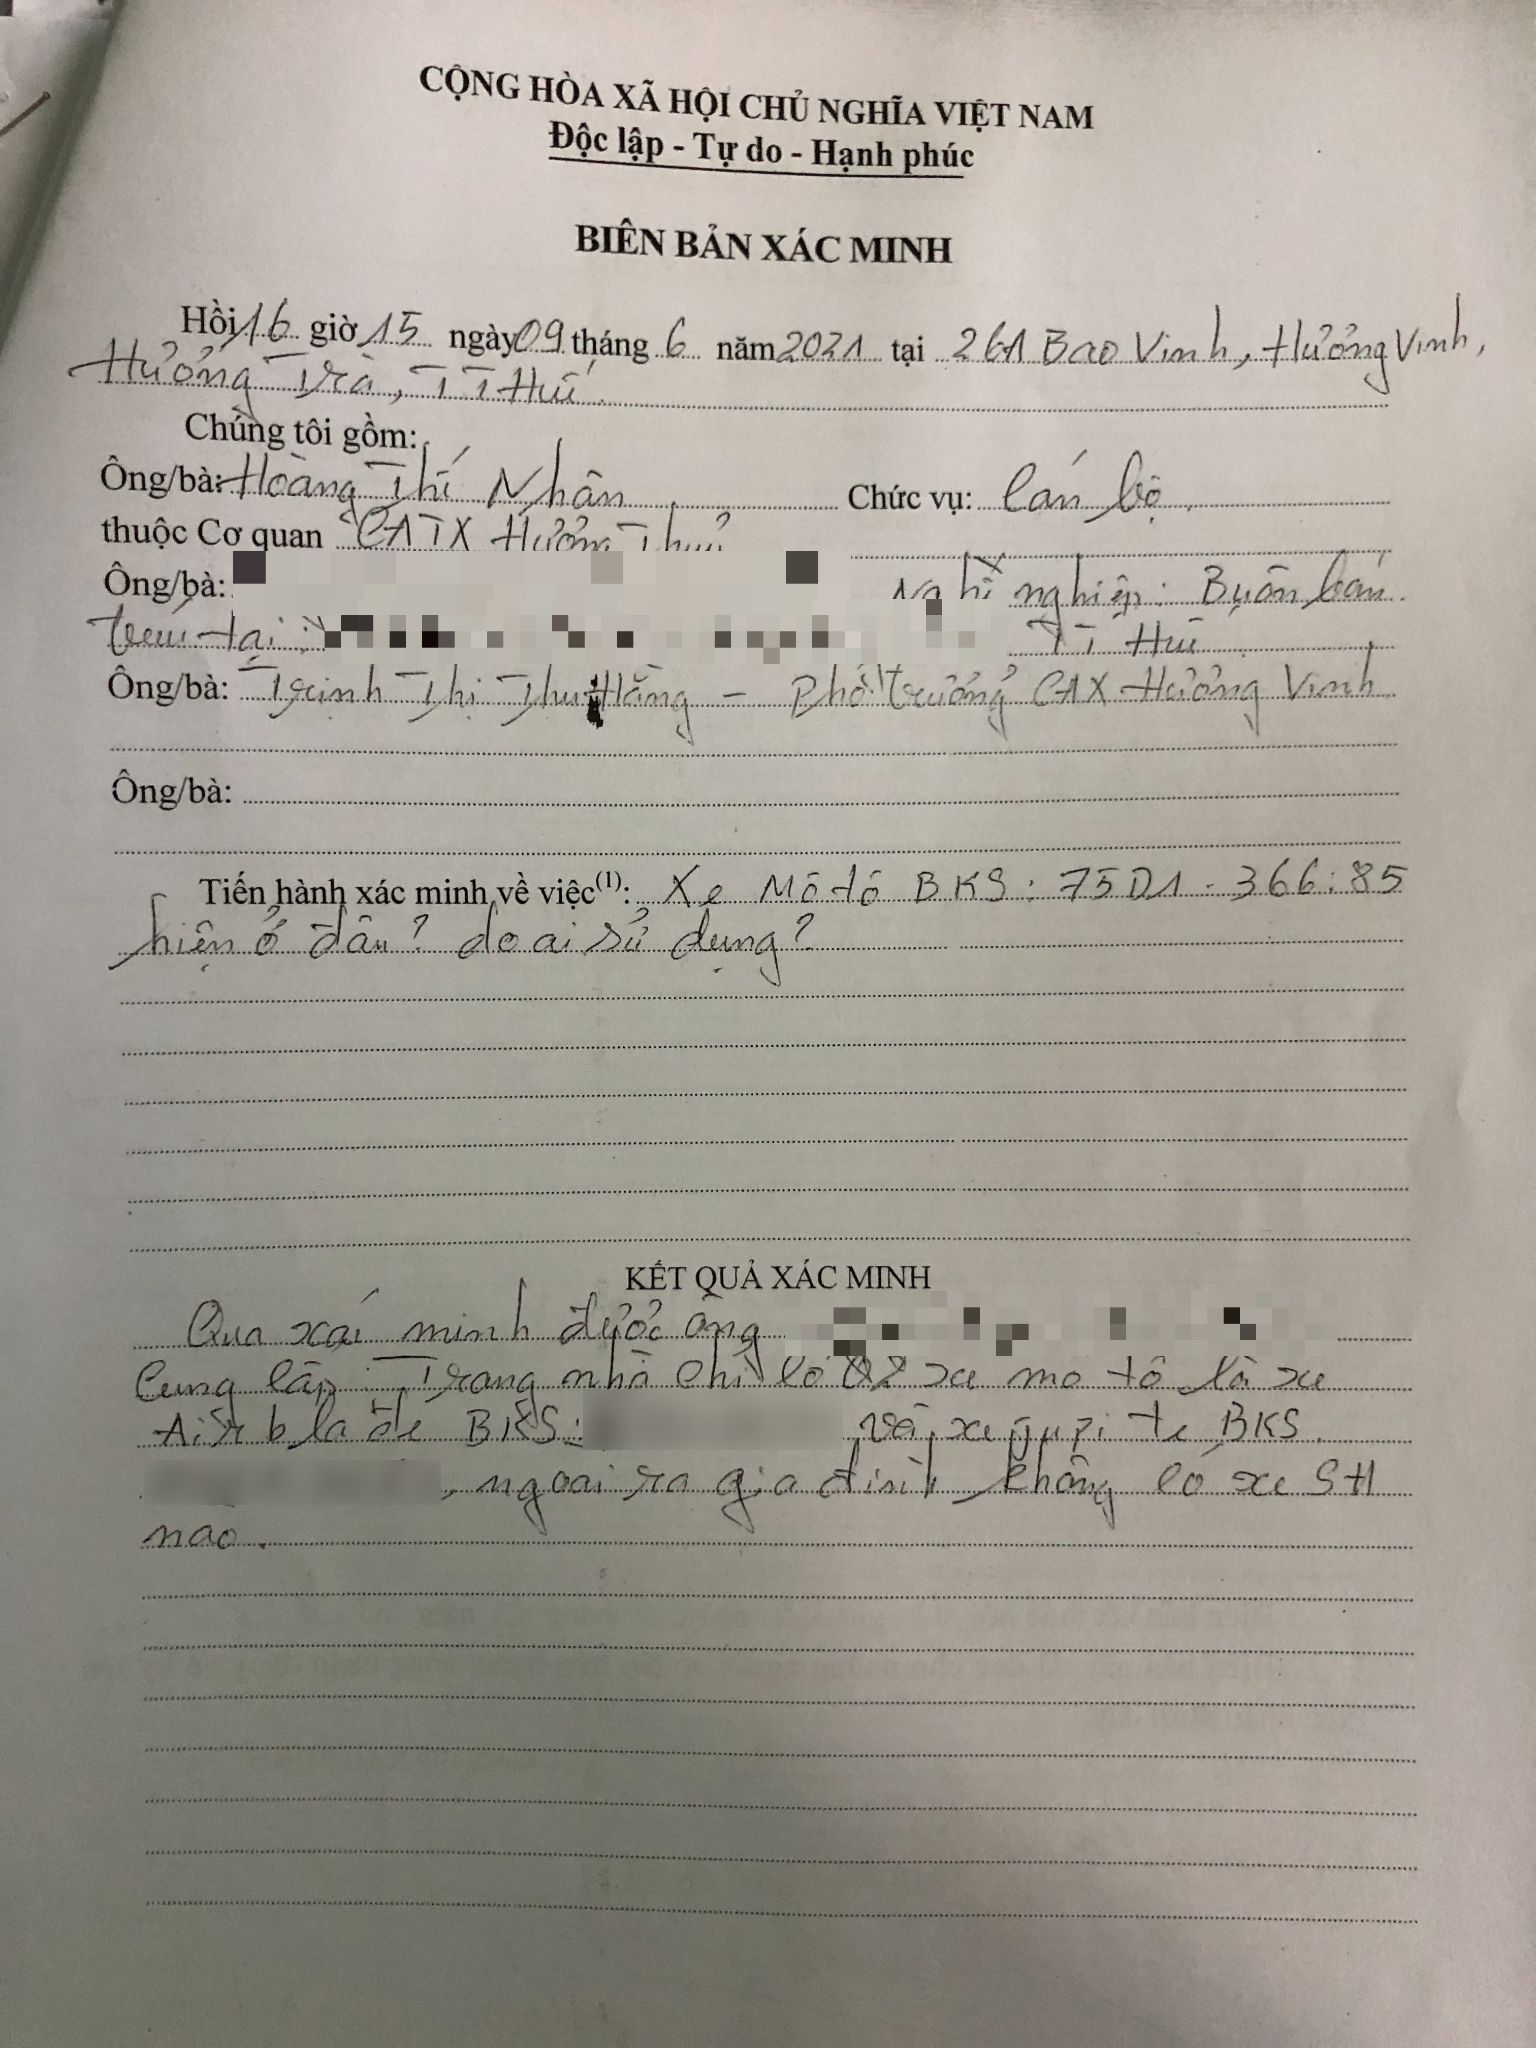 CỘNG HÒA XÃ HỘI CHỦ NGHĨA VIỆT NAM
Độc lập - Tự do - Hạnh phúc
BIÊN BẢN XÁC MINH
Hồi 16 giờ 15 ngày 09 tháng 6 năm 2021 tại 261 Bao Vinh, Hương Vinh,
Hương Trà, TT Huế.
Chúng tôi gồm:
Ông/bà: Hoàng Thị Nhân Chức vụ: Cán bộ.
thuộc Cơ quan CATX Hương Thuỷ
Ông/bà: Nghề nghiệp: Buôn bán.
tại: TT Huế
Ông/bà: Trịnh Thị Thu Hằng - Phó trưởng CAX Hương Vinh
Ông/bà:
Tiến hành xác minh về việc(1): Xe Mô tô BKS: 75D1-366.85
hiện ở đâu? do ai sử dụng?
KẾT QUẢ XÁC MINH
Qua xác minh được ông
Cung cấp: Trong nhà chỉ có 02 xe mo tô là xe
Air blade BKS: và xe jupite BKS.
, ngoài ra gia đình không có xe SH
nào.